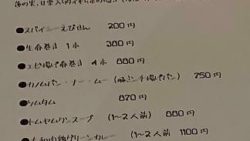 ●スパイシーえびせん 200円
●生春巻き 1本 380円
●エビ揚げ春巻き 4本 880円
●カノムパン・ナー・ムー（豚ミンチ揚げパン） 750円
●ソムタム 870円
●トムヤムクンスープ（1〜2人前） 880円
グリーンカレー（1〜2人前） 1100円